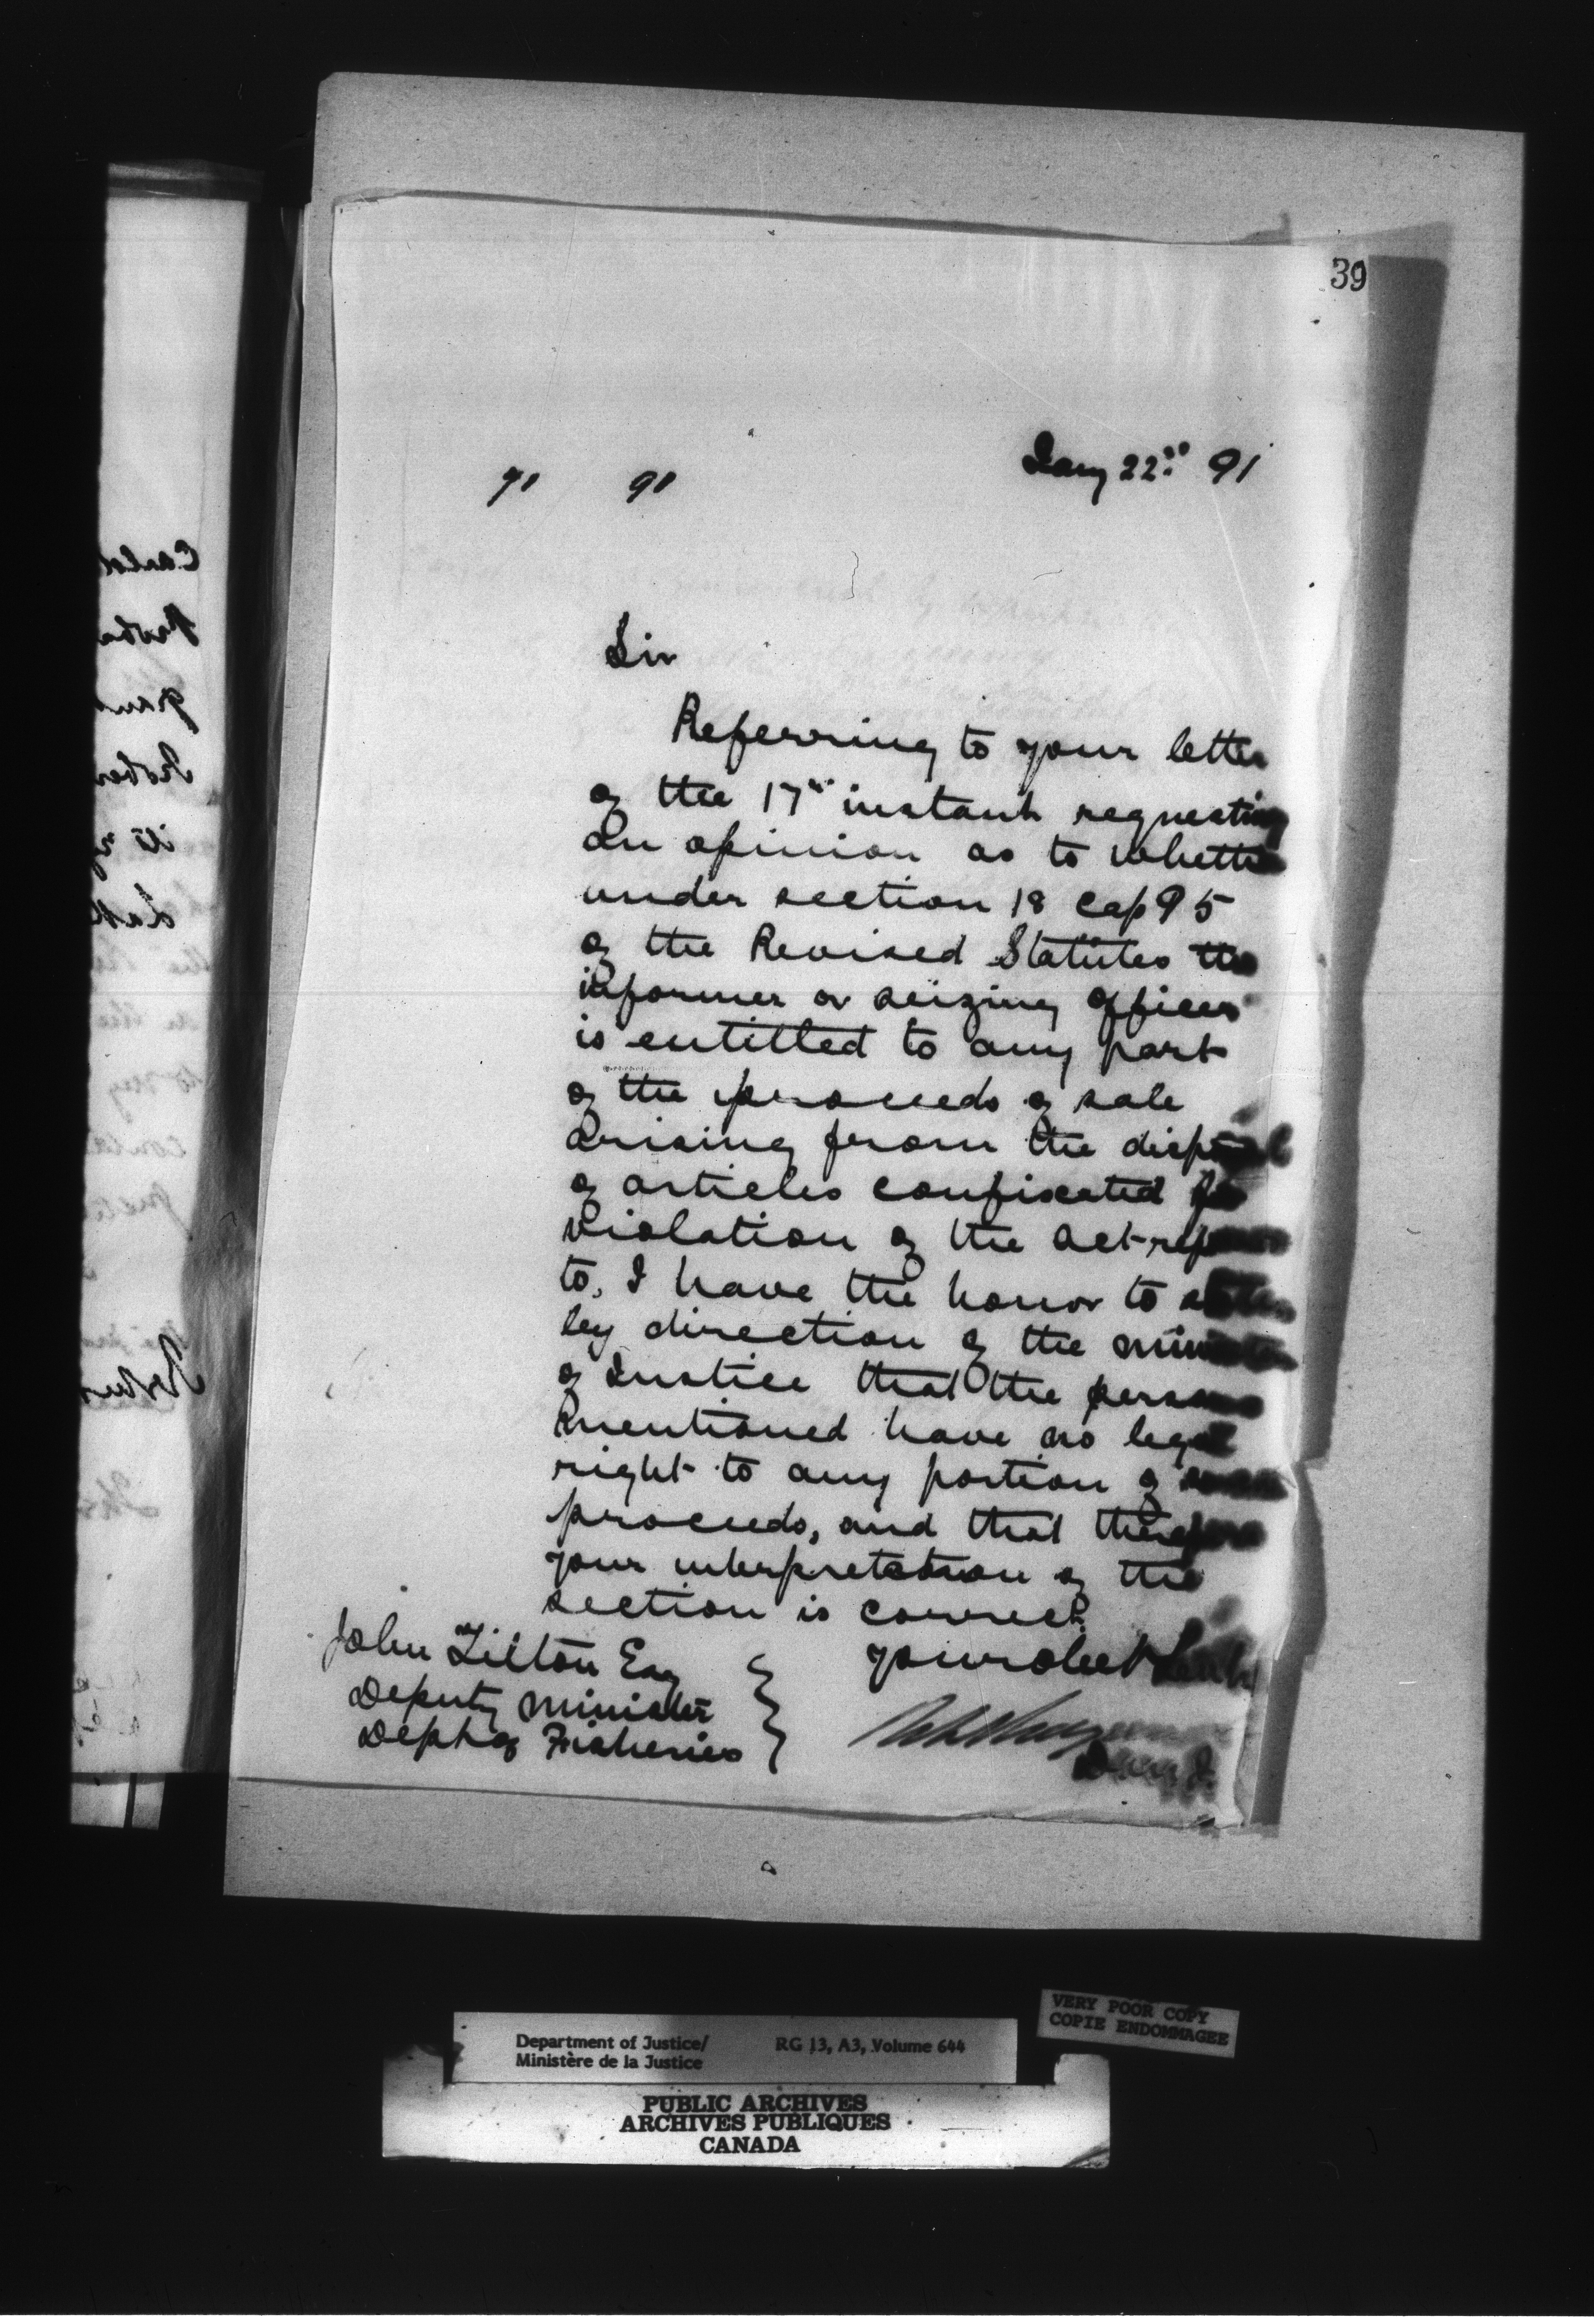 39
Jany 22nd 91
71 91
Sir
Referring to your letter
of the 17th instant requesting
an opinion as to whether
under section 18 Cap 95
of the Revised Statutes the
informer or seizing officer
is entitled to any part
of the proceeds of sale
arising from the disposal
of articles confiscated for
violation of the act referred
to, I have the honor to state
by direction of the Minister
of Justice that the persons
mentioned have no legal
right to any portion of such
proceeds, and that therefore
your interpretation of the
section is correct.
John Tilton Esq
Deputy Minister
Dept of Fisheries
Your obedt Servt
D.M.J.
Department of Justice/
Ministère de la Justice
RG 13, A3, Volume 644
VERY POOR COPY
COPIE ENDOMMAGEE
PUBLIC ARCHIVES
ARCHIVES PUBLIQUES
CANADA